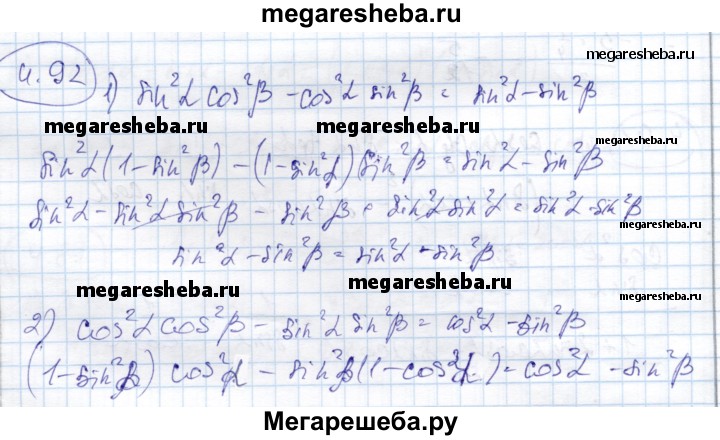 megaresheba.ru
4.92
megaresheba.ru
1) sin²α cos²β - cos²α sin²β = sin²α - sin²β
megaresheba.ru megaresheba.ru
sin²α(1-sin²β) - (1-sin²α) sin²β = sin²α - sin²β
sin²α - sin²α sin²β - sin²β + sin²α sin²α = sin²α - sin²β
megaresheba.ru
sin²α - sin²β = sin²α - sin²β
megaresheba.ru megaresheba.ru
2) cos²α cos²β - sin²α sin²β = cos²α - sin²β
(1-sin²β) cos²α - sin²β(1-cos²α) = cos²α - sin²β
Мегарешеба.ру